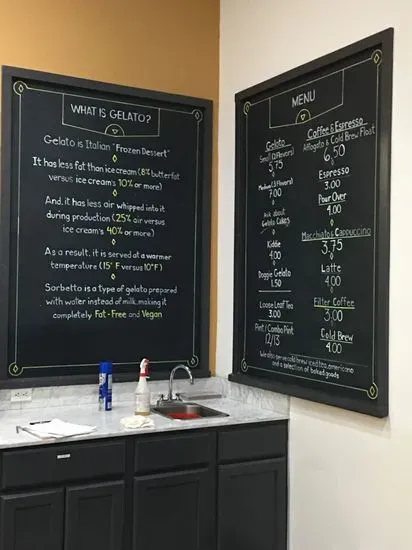 WHAT IS GELATO?
Gelato is Italian "Frozen Dessert"
It has less fat than ice cream (8% butterfat
versus ice cream's 10% or more)
And, it has less air whipped into it
during production (25% air versus
ice cream's 40% or more)
As a result, it is served at a warmer
temperature (15° F versus 10° F)
Sorbetto is a type of gelato prepared
with water instead of milk, making it
completely Fat-Free and Vegan
MENU
Gelato
Small (2 Flavors)
5.75
Medium (3 Flavors)
7.00
Ask about
Gelato Cakes
Kiddie
4.00
Doggie Gelato
1.50
Loose Leaf Tea
3.00
Pint / Combo Pint
12/13
Coffee & Espresso
Affogato & Cold Brew Float
6.50
Espresso
3.00
Pour Over
4.00
Macchiato & Cappuccino
3.75
Latte
4.00
Filter Coffee
3.00
Cold Brew
4.00
We also serve cold brew iced tea, americano
and a selection of baked goods